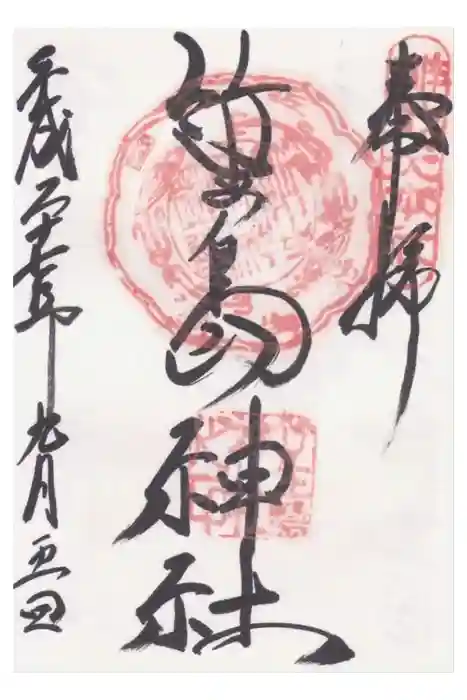 奉拝
竹生島神社
平成二十七年九月五日